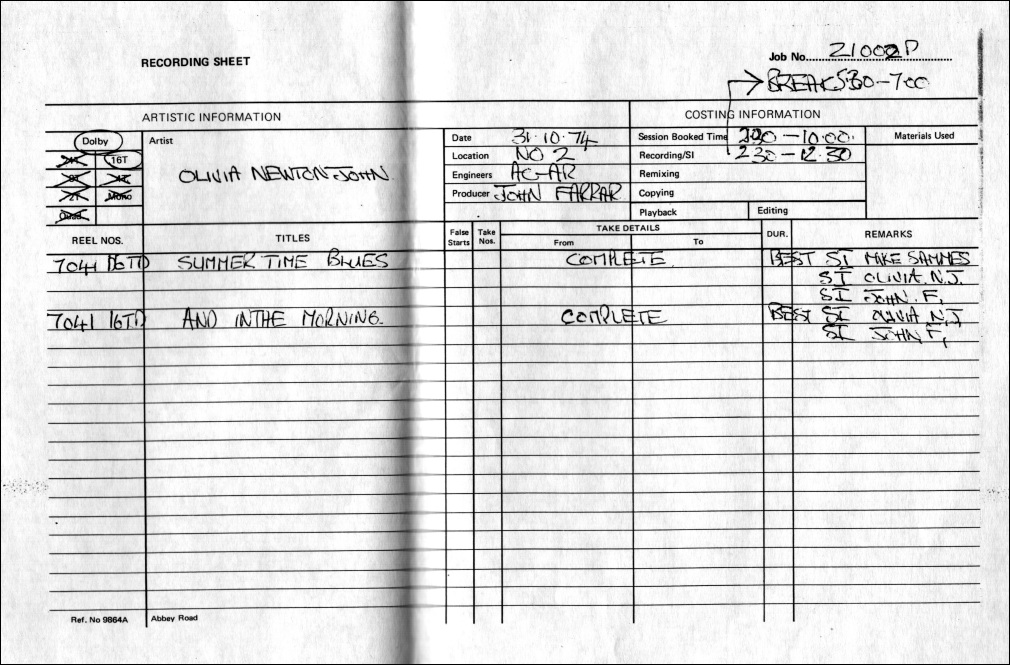 RECORDING SHEET
Job No. 21002P
BREAK 530-7.00
ARTISTIC INFORMATION COSTING INFORMATION
Dolby
Artist OLIVIA NEWTON JOHN.
16T
2T Mono
Quad
Date 31.10.74
Location NO 2
Engineers AC-AR
Producer JOHN FARRAR
Session Booked Time 2.30-10.00. Materials Used
Recording/SI 2.30-12.30
Remixing
Copying
Playback Editing
REEL NOS. TITLES False Starts Take Nos. TAKE DETAILS From To DUR. REMARKS
7041 16TD SUMMER TIME BLUES COMPLETE BEST SI MIKE SAMMES
SI OLIVIA.N.J.
SI JOHN. F,
7041 16TD AND INTHE MORNING. COMPLETE BEST SI OLIVIA N.J
SI JOHN F,
Ref. No 9864A Abbey Road